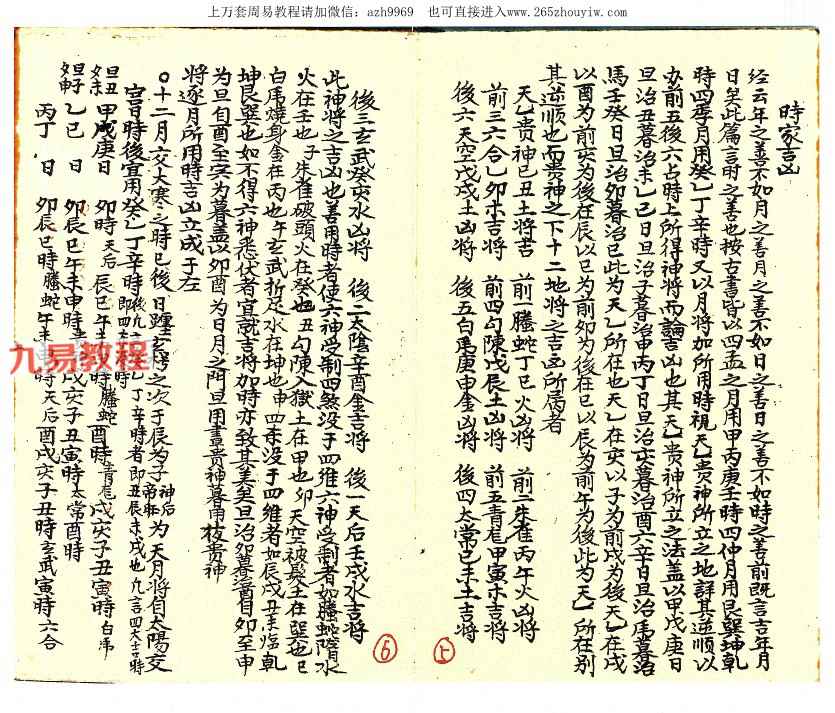 上万套周易教程请加微信：azh9969 也可直接进入www.265zhouyiw.com
時家吉凶
经云年之善不如月之善月之善不如日之善日之善不如時之善前既言吉年月
日矣此篇言時之善也按古書皆以四孟之月用甲丙庚壬時四仲月用艮巽坤乾
時四季月用癸乙丁辛時又以月將加所用時視天乙贵神所立之地詳其逆順以
前五後六占時上所得神將而論吉凶也其天乙贵神所立之法盖以甲戊庚日
旦治丑暮治未乙己日旦治子暮治申丙丁日旦治亥暮治酉六辛日旦治馬暮治
馬壬癸日旦治卯暮治巳此為天乙所在也天乙在亥以子為前戌為後天乙在戌
以酉為前亥為後在辰以巳為前卯為後在巳以辰為前午為後此為天乙所在别
其逆順也而贵神之下十二地將之吉凶所属者
天乙贵神己丑土將吉 前一螣蛇丁巳火凶將 前二朱雀丙午火凶將
前三六合乙卯木吉將 前四勾陳戊辰土凶將 前五青龙甲寅木吉將
後六天空戊戌土凶將 後五白虎庚申金凶將 後四太常己未土吉將
後三玄武癸亥水凶將 後二太陰辛酉金吉將 後一天后壬戌水吉將
此神將之吉凶也善用時者使六神受制四煞没于四维六神受制者如螣蛇堕水
火在壬也子朱雀破頭火在癸也丑勾陳入獄土在甲也卯天空被髮土在巽也巳
白虎燒身金在丙也午玄武折足水在坤也申四煞没于四维者如辰戌丑未临乾
坤艮巽也如不得六神悉伏者宜就吉將加時亦致其美矣旦治卯暮酉自卯至申
为旦自酉至寅为暮盖以卯酉為日月之門旦用晝贵神暮用夜贵神
將逐月所用時吉凶立成于左
〇十二月交大寒之時已後日躔玄枵之次于辰為子神后帝柩為天月將自太陽交
宫日時後宜用癸乙丁辛時即四大吉時 乙丁辛時者即丑辰未戌也凡言四大吉時
旦丑暮未 甲戊庚日 卯時天后 辰巳午未 時螣蛇 酉時青龙 戌亥子丑寅時白虎
旦子暮申 乙己日 卯辰巳午未申時 戌亥子丑寅時太常酉時
丙丁日 卯辰巳時螣蛇午未申時天后酉戌亥子丑時玄武寅時六合
上
6
九易教程